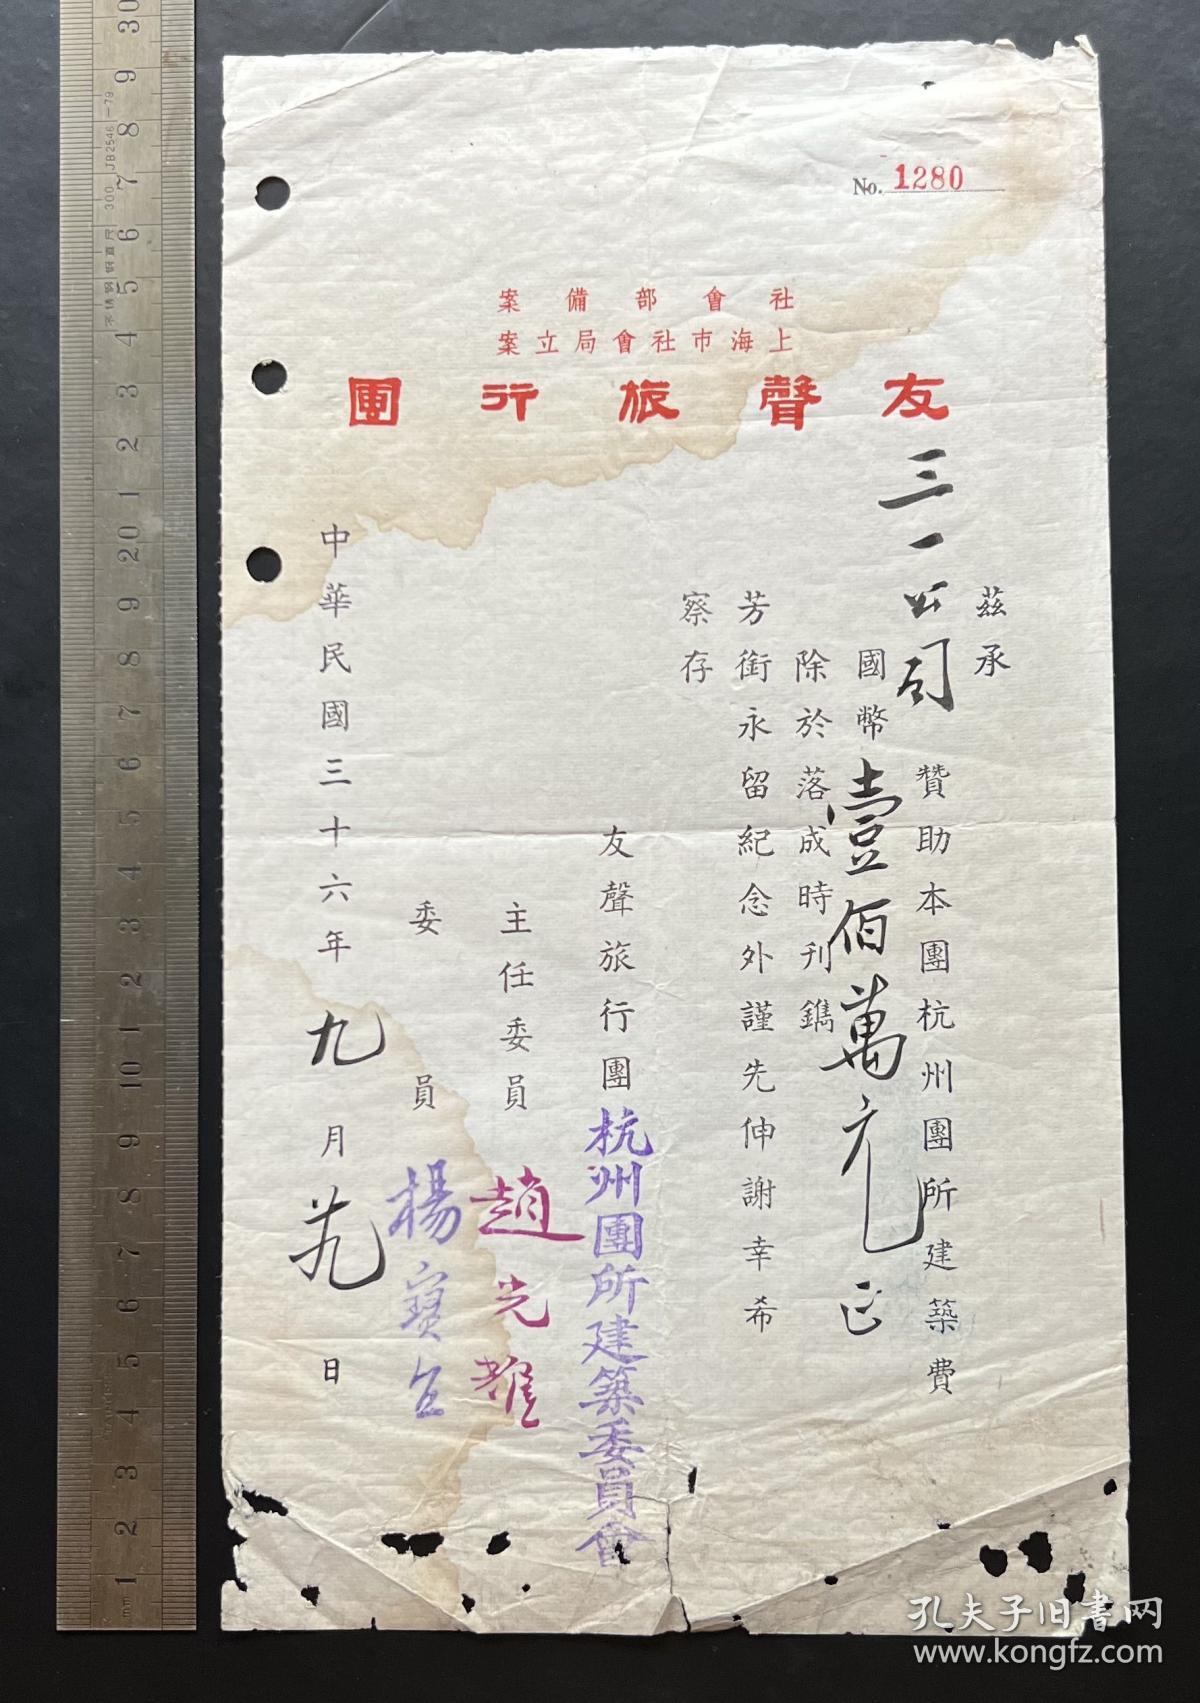 No. 1280
社會部備案
上海市社會局立案
友聲旅行團
茲承
三一公司贊助本團杭州團所建築費
國幣壹佰萬元正
除於落成時刊鐫
芳銜永留紀念外謹先伸謝幸希
察存
友聲旅行團杭州團所建築委員會
主任委員 趙光
委員 楊寶
中華民國三十六年九月廿九日
孔夫子旧书网
www.kongfz.com